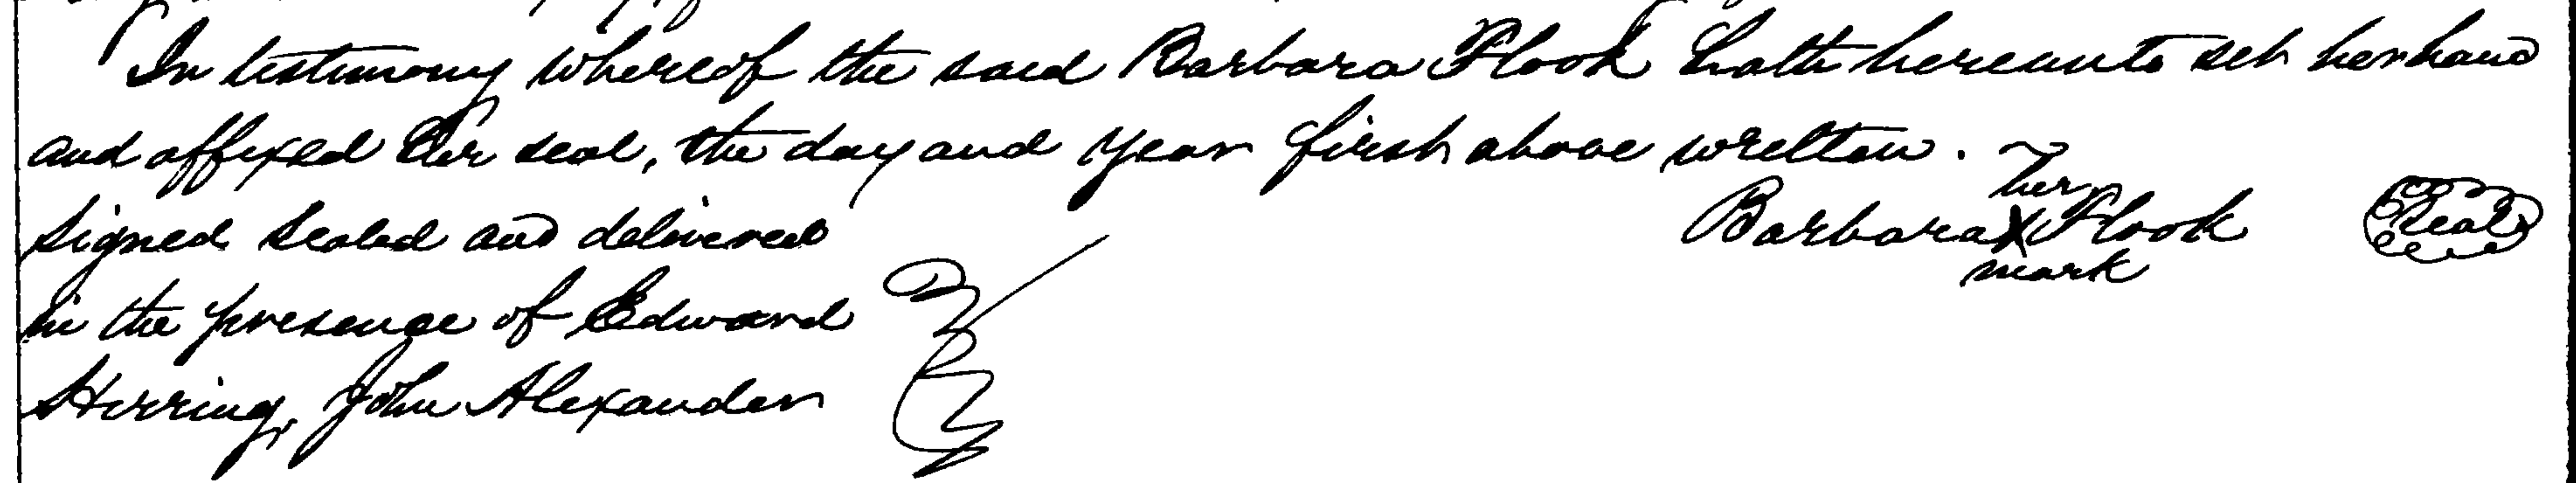 In testimony whereof the said Barbara Flook hath hereunto set her hand
and affixed her seal, the day and year first above written.
Signed Sealed and delivered
in the presence of Edward
Herring, John Alexander
her
Barbara X Flook Seal
mark